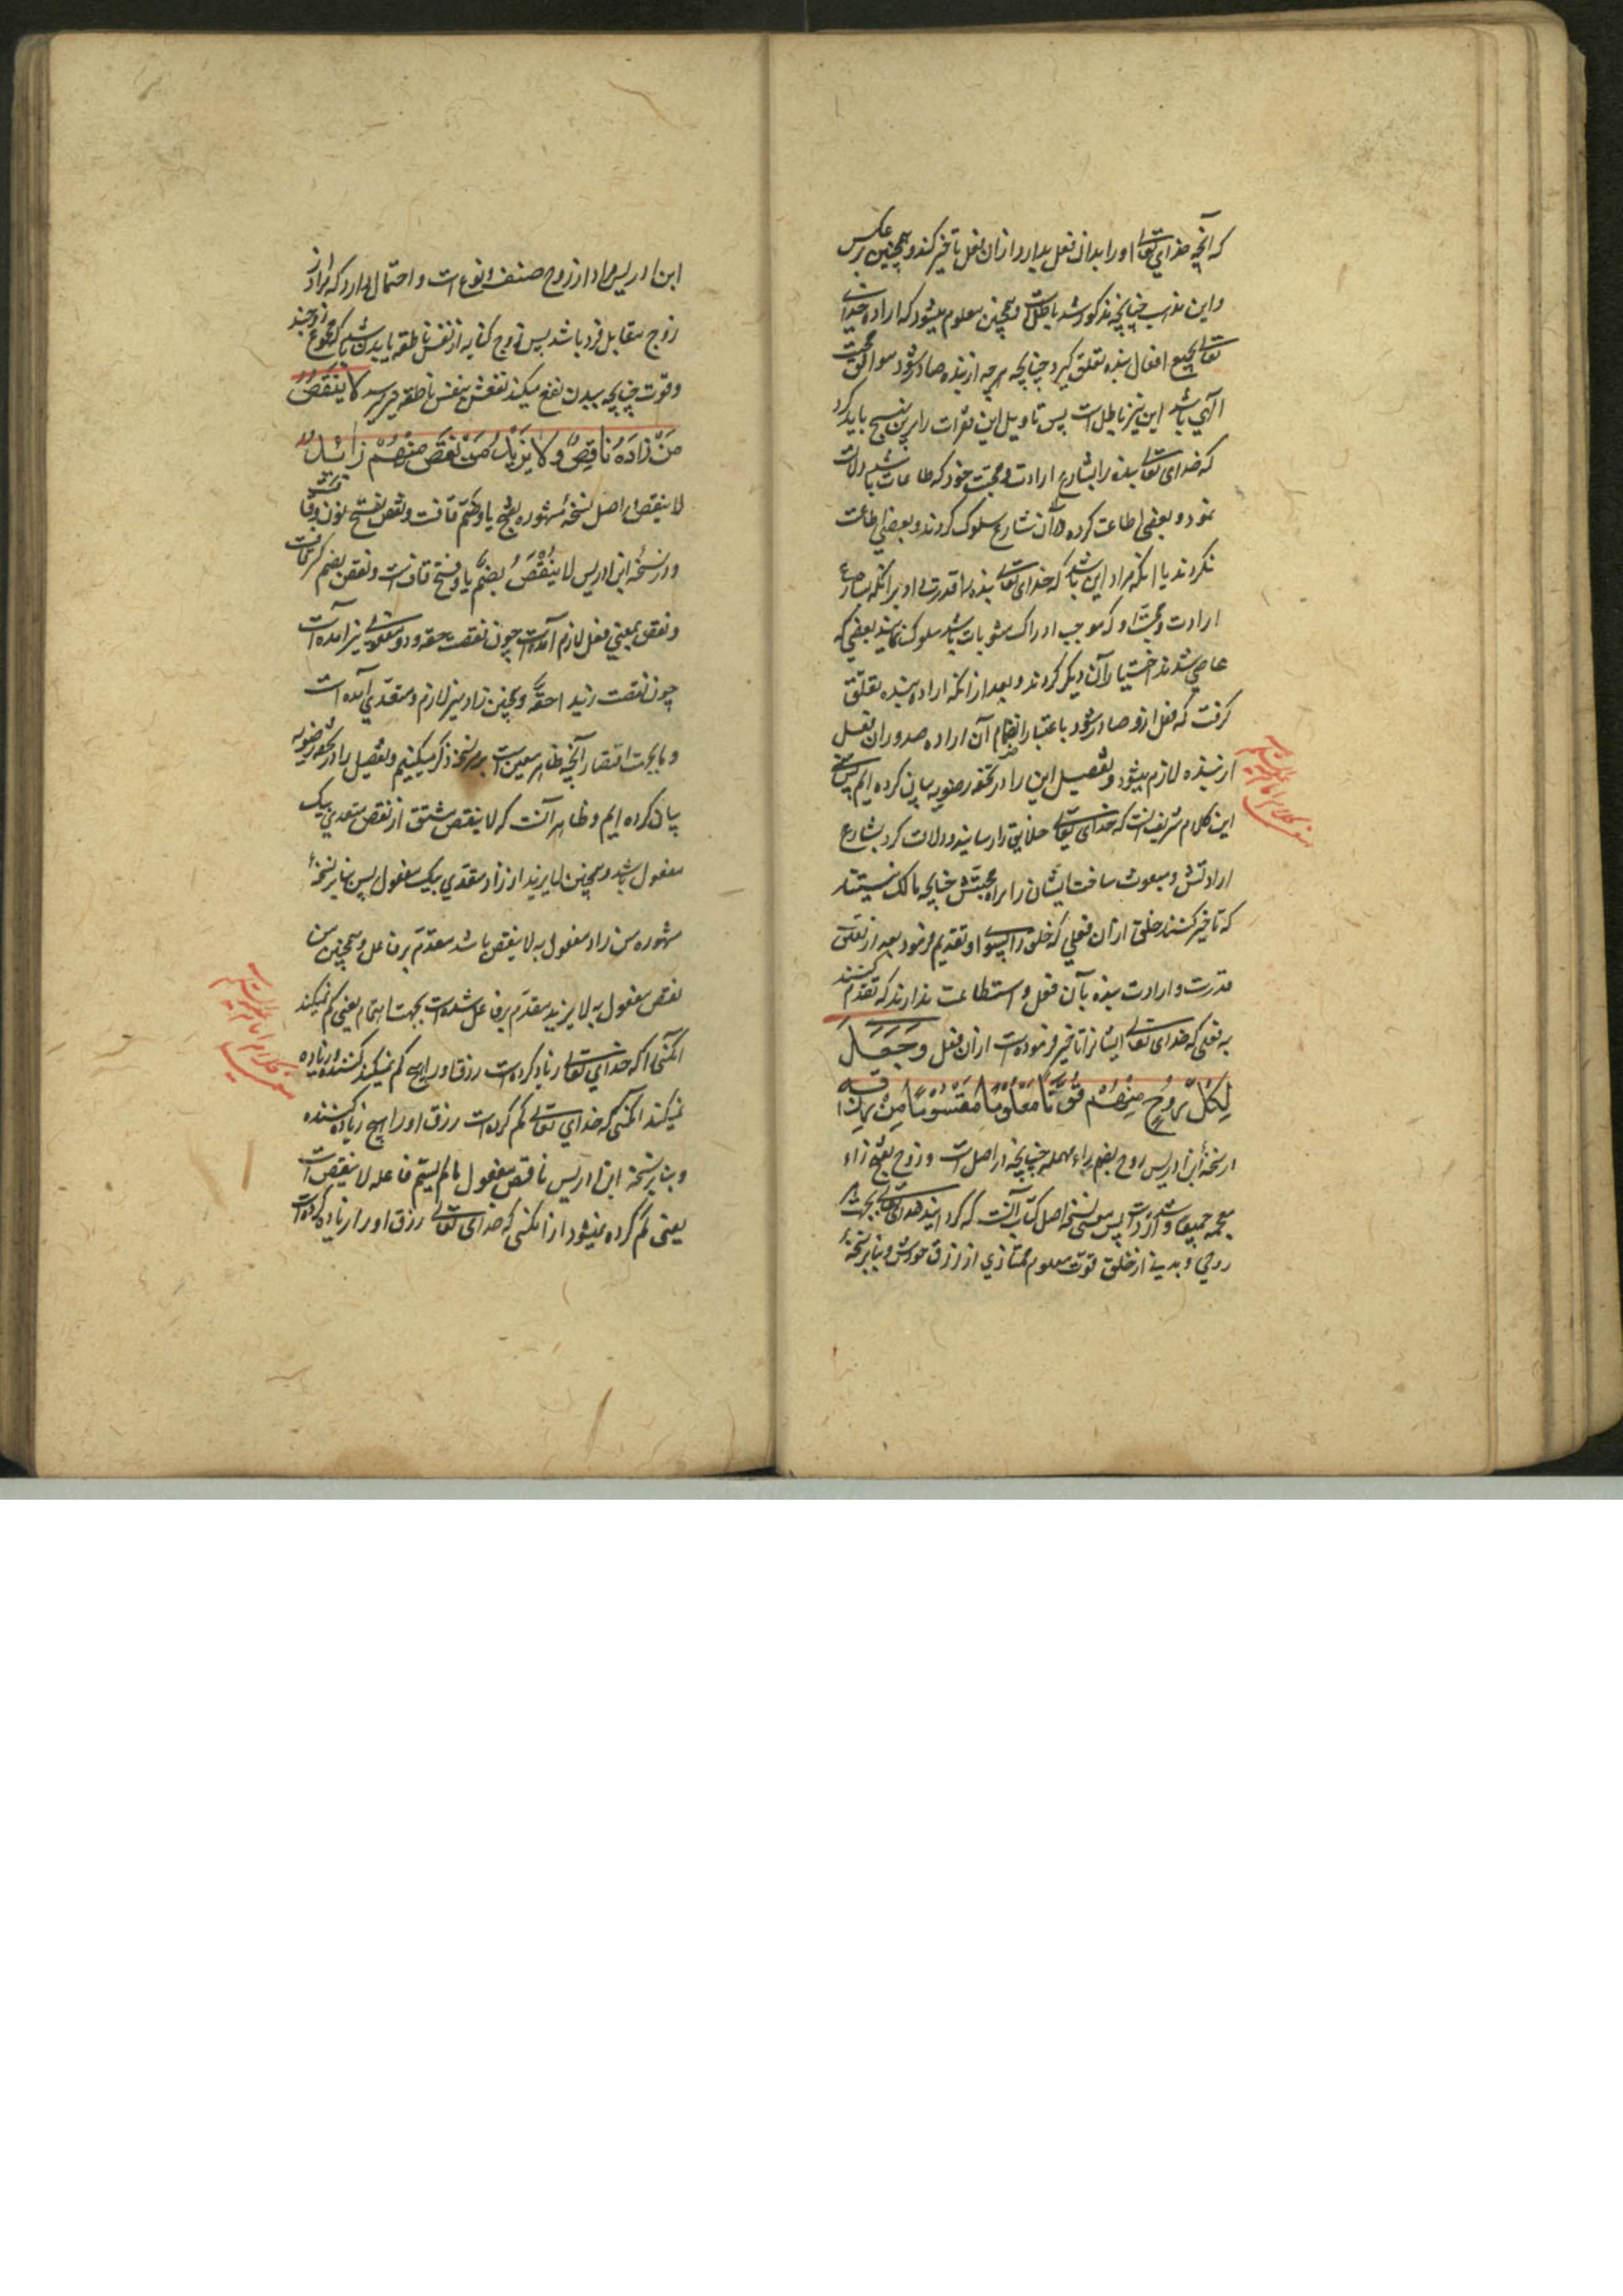 که آنچه خدای تعالی اورا بدان فعل بدارد از ان فعل تاخیر کند و همچنین بر عکس
و این مذهب چنانچه مذکور شد باطلست و همچنین معلوم میشود که اراده خدای
تعالی بجمیع افعال بنده تعلق گیرد چنانچه هر چه از بنده صادر شود موافق محبت
الهی باشد این نیز باطل است پس تاویل این فقرات را برین نهج باید کرد
که خدای تعالی بنده را بشارع ارادت و محبت خود که طاعات باشد دلالت
نمود و بعضی اطاعت کرده از آن شارع سلوک کردند و بعضی اطاعت
نکردند یا انکه مراد این باشد که خدای تعالی بنده را قدرت داد بر انکه بشارع
ارادت و محبت او که موجب ادراک مثوبات باشد سلوک نمایند بعضی که
عاصی شدند اختیار آن دیگر کردند و بعد از انکه اراده بنده تعلق
گرفت که فعل ازو صادر شود باعتبار انضمام آن اراده صدور ان فعل
از بنده لازم میشود و تفصیل این را در تحفه رضویه بیان کرده ایم پس معنی
این کلام شریف انست که خدای تعالی خلایق را رسانید و دلالت کرد بشارع
ارادتش و مبعوث ساخت ایشان را براه محبتش چنانچه مالک نیستند
که تاخیر کنند خلق از ان فعلی که خلق را بسوی او تقدیم فرمود بعد از تعلق
قدرت و ارادت بنده بآن فعل و استطاعت ندارند که تقدم کنند
به فعلی که خدای تعالی ایشانرا تاخیر فرموده است از ان فعل وَجَعَلَ
لِكُلِّ رُوحٍ مِنْهُمْ قُوتًا مَعْلُومًا مَقْسُومًا مِنْ رِزْقِهِ
در نسخهٔ ابن ادریس روح بضم راء مهمله چنانچه در اصل است و زوج بفتح زاء
معجمه جمیعا وارد است پس معنی نسخه اصل کتاب آنست که گردانید خدای تعالی بجهت هر
روحی و بدنی از خلق قوت معلوم ممتازی از رزق خودش و بنابر نسخهٔ
ابن ادریس مراد از زوج صنف و نوع است و احتمال دارد که مراد از
زوج مقابل فرد باشد پس زوج کنایه از نفس ناطقه یا بدن باشد که مجموع زوجند
و قوت چنانچه ببدن نفع میکند نفعش بنفس ناطقه میرسد لَا يَنْقُصُ
مَنْ زَادَهُ نَاقِصٌ وَلَا يَزِيدُ مَنْ نَقَصَ مِنْهُمْ زَائِدٌ
لا ینقص در اصل نسخهٔ مشهوره بفتح یا و ضم قافست و نقص بفتح نون و قاف
و در نسخه ابن ادریس لا یُنْقَصُ بضم یا و فتح قاف است و نقص بضم کسر قافست
و نقص بمعنی فعل لازم آمده است چون نقصت حقه و دو مفعولی نیز آمده است
چون نقصت زید احقه و همچنین زاد نیز لازم و متعدی آمده است
و ما بجهت اختصار آنچه ظاهر معنی است بر هر نسخه ذکر میکنیم و تفصیل را در تحفه رضویه
بیان کرده ایم و ظاهر آنست که لا ینقص مشتق از نقص متعدی بیک
مفعول باشد و همچنین لا یزید از زاد متعدی بیک مفعول پس بنابر نسخهٔ
مشهوره من زاد مفعول به لا ینقص باشد مقدم بر فاعل و همچنین من
نقص مفعول به لا یزید مقدم بر فاعل شده است بجهت اهتمام یعنی کم نمیکند
آنکسی را که خدای تعالی زیاد کرده است رزق او را هیچ کم کننده و زیاده
نمیکند آنکسی که خدای تعالی کم کرده است رزق او را هیچ زیاده کننده
و بنابر نسخهٔ ابن ادریس ناقص مفعول مالم یسم فاعله لا ینقص است
یعنی کم کرده نمیشود از انکسی که خدای تعالی رزق او را زیاده کرده است